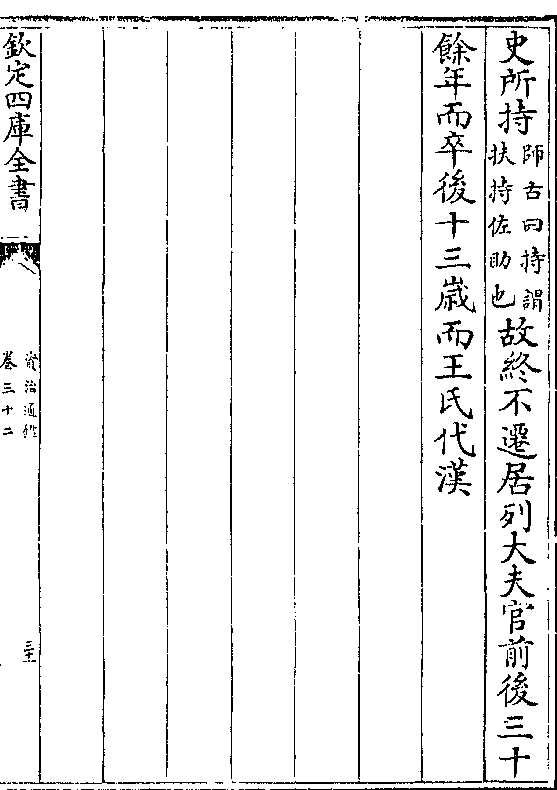 史所持師古曰持謂扶持佐助也故終不遷居列大夫官前後三十
餘年而卒後十三歲而王氏代漢
欽定四庫全書
資治通鑑
卷三十二
三十